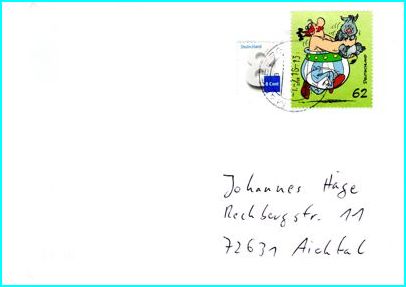 Deutschland
8 Cent
DEUTSCHLAND
62
Johannes Häge
Rechbergstr. 11
72631 Aichtal